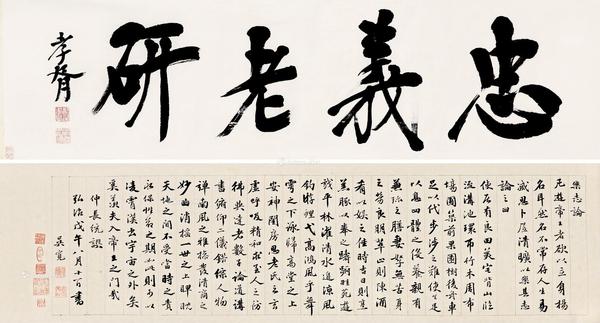 忠義老研
孝胥
樂志論
凡遊帝王者欲以立身揚
名耳然名不常存人生易
滅思卜居清曠以樂其志
論之曰
使居有良田美宅背山臨
流溝池環布竹木周布
場圃築前果園樹後舟車
足以代步涉之難使令足
以息四體之役養親有
兼珍之膳妻孥無苦身
之勞良朋萃止則陳酒
肴以娛之佳時吉日則烹
羔豚以奉之躊躇畦苑遊
戲平林濯清水追涼風
釣游鯉弋高鴻風乎舞
雩之下詠歸高堂之上
安神閨房思老氏之玄
虛呼吸精和求至人之彷
彿與達者數子論道講
書俯仰二儀錯綜人物
彈南風之雅操發清商之
妙曲逍搖一世之上睥睨
天地之間不受當時之責
永保性命之期如此則可以
凌霄漢出宇宙之外矣
豈羡夫入帝王之門哉
仲長統譔
弘治戊午八月十日書
吳寬